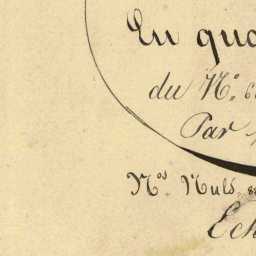 En qua
du N.º 6
Par
N.os Nuls. 8
Ech